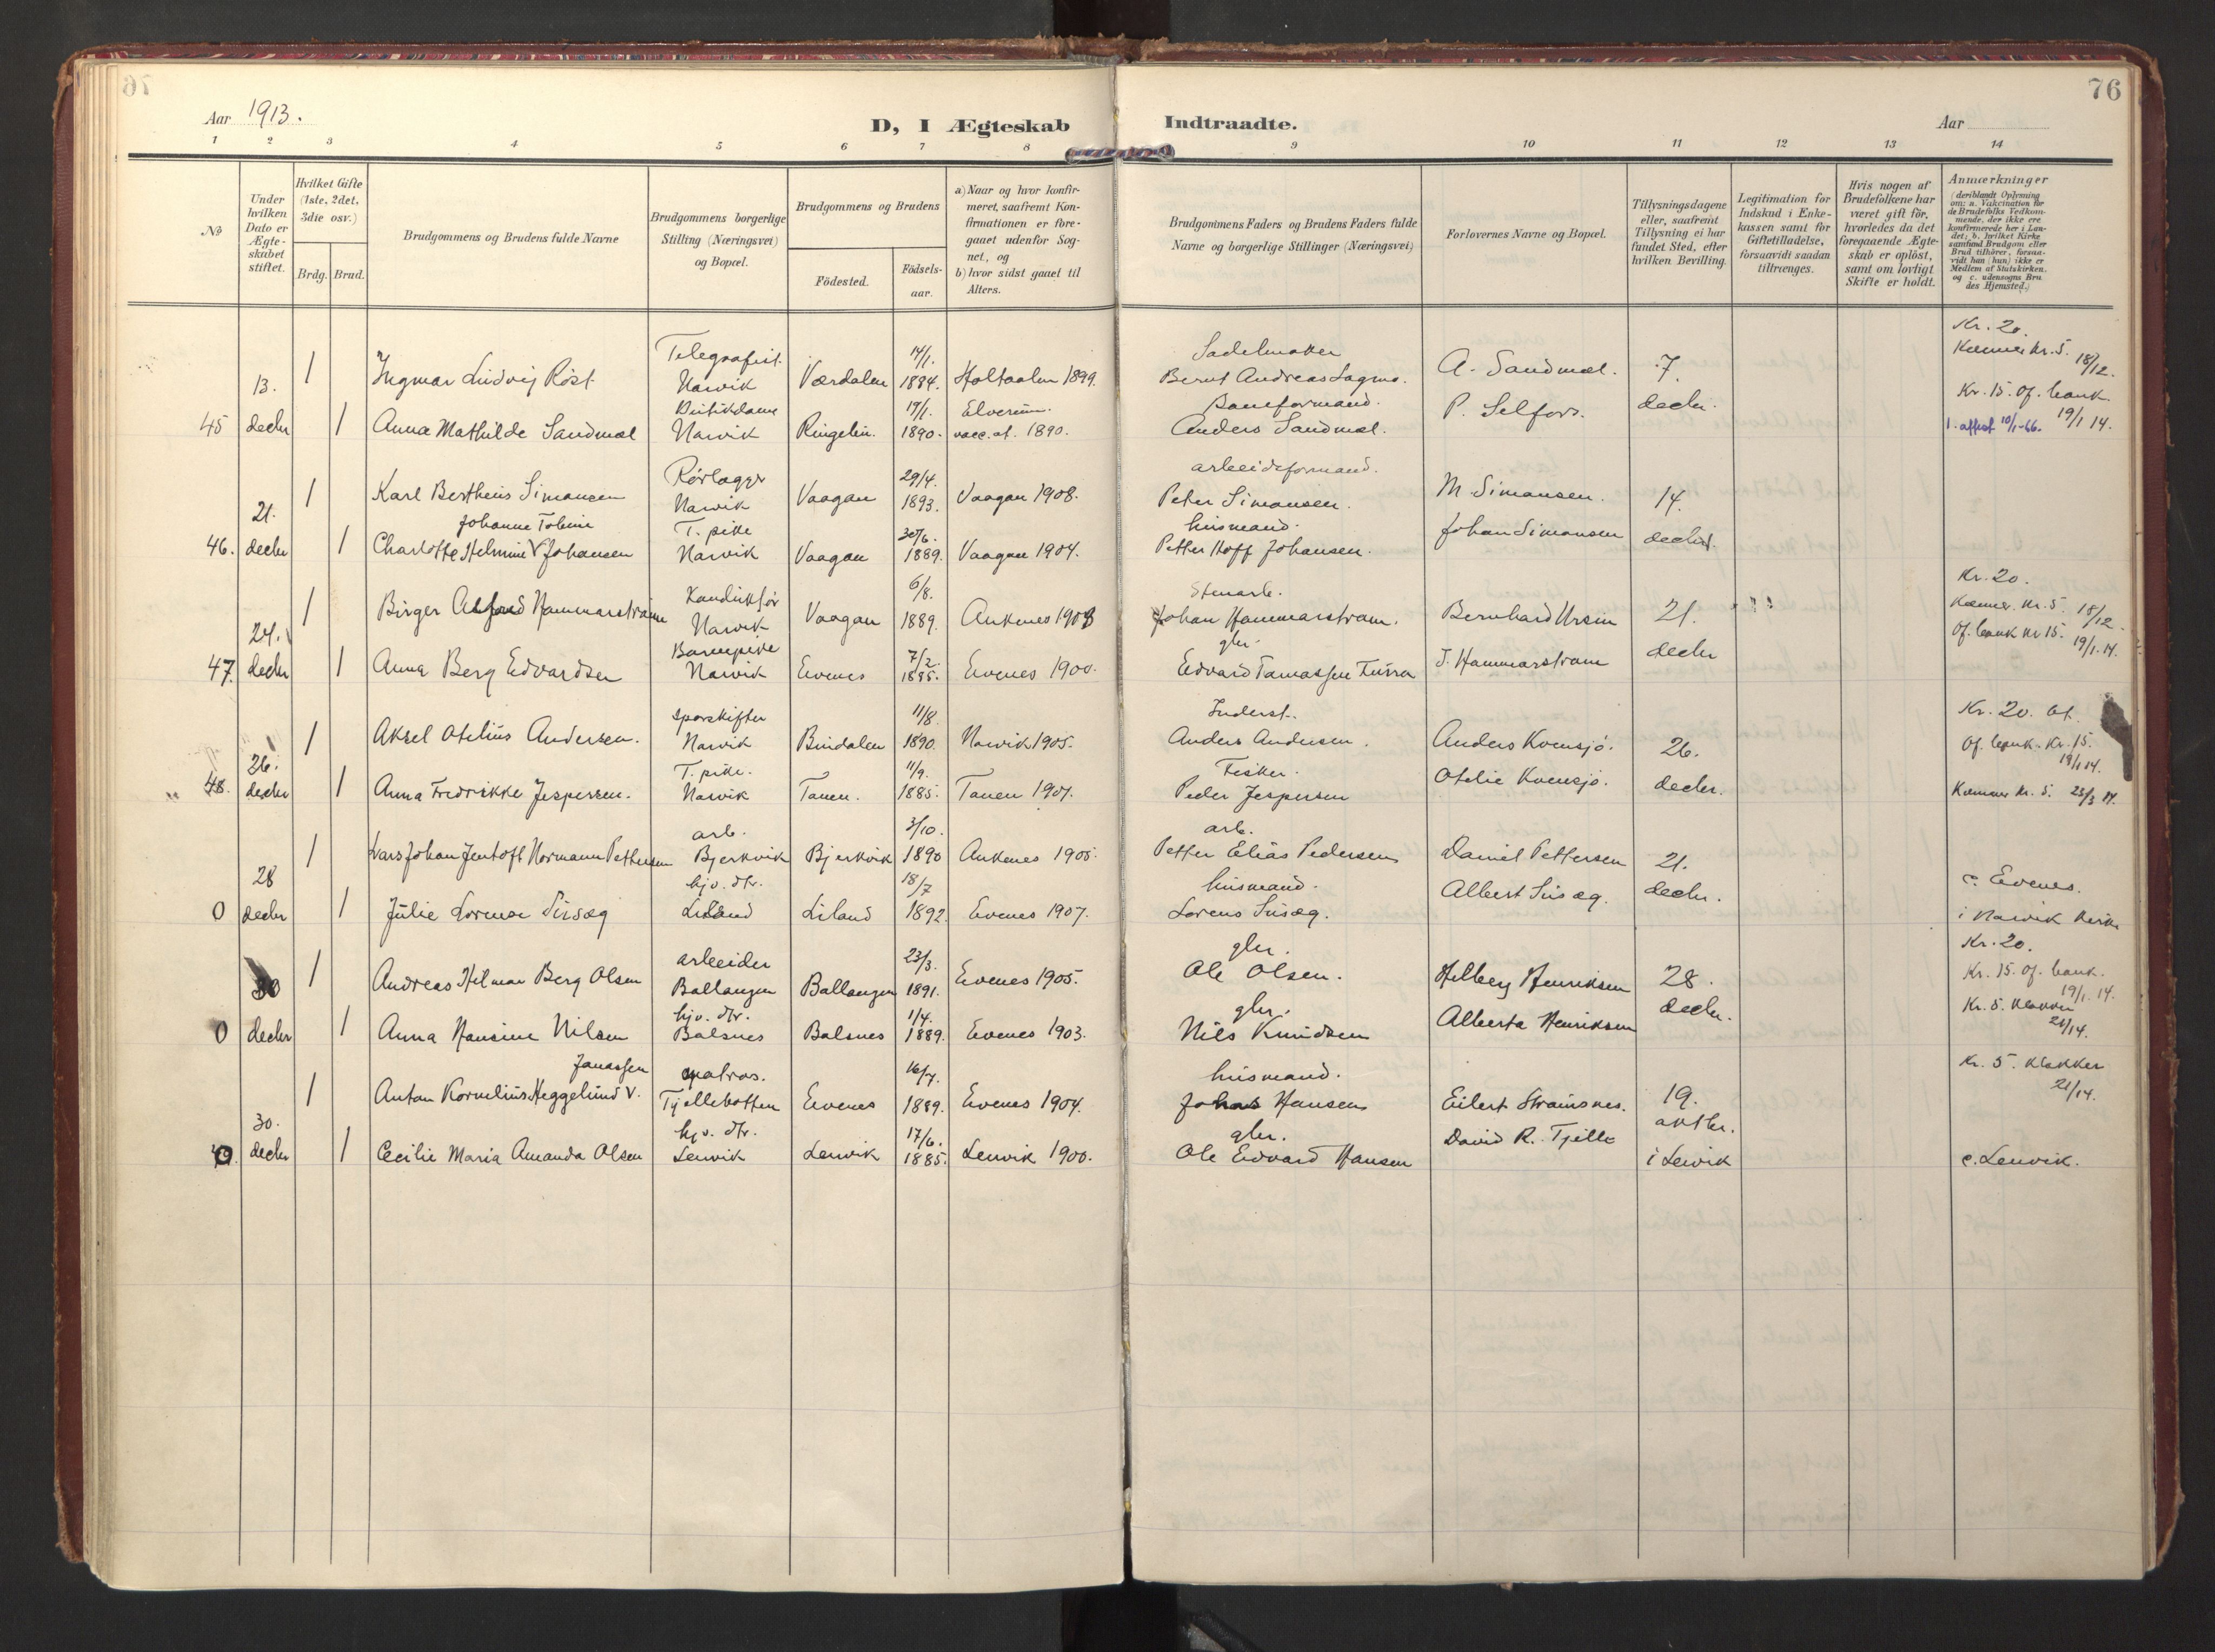 76
Aar 1913.
D, I Ægteskab Indtraadte.
Aar
1 2 3 4 5 6 7 8 9 10 11 12 13 14
No
Under hvilken Dato er Ægteskabet stiftet.
Hvilket Gifte (1ste, 2det, 3die osv.)
Brdg. Brud.
Brudgommens og Brudens fulde Navne
Brudgommens borgerlige Stilling (Næringsvei) og Bopæl.
Brudgommens og Brudens
Födested.
Födselsaar.
a) Naar og hvor konfirmeret, saafremt Konfirmationen er foregaaet udenfor Sognet, og
b) hvor sidst gaaet til Alters.
Brudgommens Faders og Brudens Faders fulde Navne og borgerlige Stillinger (Næringsvei)
Forlovernes Navne og Bopæl.
Tillysningsdagene eller, saafremt Tillysning ei har fundet Sted, efter hvilken Bevilling.
Legitimation for Indskud i Enkekassen samt for Giftetilladelse, forsaavidt saadan tiltrænges.
Hvis nogen af Brudefolkene har været gift för, hvorledes da det foregaaende Ægteskab er oplöst, samt om lovligt Skifte er holdt.
Anmærkninger
(deriblandt Oplysning om: a. Vaccination for de Brudefolks Vedkommende, der ikke ere konfirmerede her i Landet; b. hvilket Kirkesamfund Brudgom eller Brud tilhörer, forsaavidt han (hun) ikke er Medlem af Statskirken, og c. udensogns Brudes Hjemsted.)
Telegrafist. 14/1. Sadelmaker Kr. 20.
13. 1 Ingmar Ludvig Röst Narvik Værdalen 1884. Holtaalen 1899. Bernt Andreas A. Sandmæl. 7. Kæmner kr. 5. 18/12.
19/1. Elverum. Baneformand. Kr. 15. Of. bank 19/1 14.
45 decbr 1 Anna Mathilde Sandmæl Narvik 1890. vacc. at. 1890. Anders Sandmæl. P. Selfors. decbr. 1. attest 10/1-66.
Rørlægger 29/4. arbeidsformand.
21. 1 Karl Bertheus Simonsen Narvik Vaagan 1893. Vaagan 1908. Peter Simonsen. M. Simonsen. 14.
T. pike 30/6. husmand.
46. decbr 1 Charlotte Helmine V Johansen Narvik Vaagan 1889. Vaagan 1904. Petter Hoff Johansen. Johan Simonsen decbr.
6/8. Stenarb. Kr. 20.
24. 1 Birger Hammarstrøm Narvik Vaagan 1889. Ankenes 1903 Johan Hammarstrøm. Bernhard Ursin 21. Kæmner. Kr. 5. 18/12.
7/2. gbr. Of. bank kr 15. 19/1. 14.
47. decbr 1 Anna Berg Edvardsen Narvik Evenes 1885. Evenes 1900. J. Hammarstrøm decbr
sporskifter 11/8. Inderst. Kr. 20. at.
26. 1 Aksel Otelius Andersen. Narvik Bindalen 1890. Narvik 1905. Anders Andersen. Anders Kvensjö. 26. Of. bank. Kr. 15. 19/1 14.
T. pike. 11/9. Fisker.
48. decbr 1 Anna Fredrikke Jespersen. Narvik Tanen. 1885. Tanen 1901. Peder Jespersen Otelie Kvensjö. decbr. Kæmner kr. 5. 23/3 14.
arb. 3/10. arb.
28 1 Lars Johan Jentoft Normann Pettersen Bjerkvik Bjerkvik 1890 Ankenes 1905. Petter Elias Pedersen Daniel Pettersen 21.
hjv. dtr. 18/7 husmand. c. Evenes.
0 decbr 1 Julie Lorense Liland Liland 1892. Evenes 1907. Lorens Albert decbr. i Narvik kirke
arbeider 23/3. gbr. Kr. 20.
30 1 Andreas Hilmar Berg Olsen Ballangen Ballangen 1891. Evenes 1905. Ole Olsen. Helberg Henriksen 28. Kr. 15. Of. bank. 19/1. 14.
hjv. dtr. 1/4. gbr. Kr. 5. klokker
0 decbr 1 Anna Hansine Nilsen Balsnes Balsnes 1889. Evenes 1903. Nils Knudsen Alberta Henriksen decbr. 21/14.
Janassen matros. 16/7. husmand. Kr. 5. klokker 21/14.
1 Anton Kornelius Heggelund V. Tjellebotten Evenes 1889. Evenes 1904. Hansen Eilert Strømsnes. 19.
30. hjv. dtr. 17/6. gbr. oktbr.
0 decbr 1 Cecilie Maria Amanda Olsen Lenvik Lenvik 1885. Lenvik 1900. Ole Edvard Hansen David R. Tjelle i Lenvik c. Lenvik.